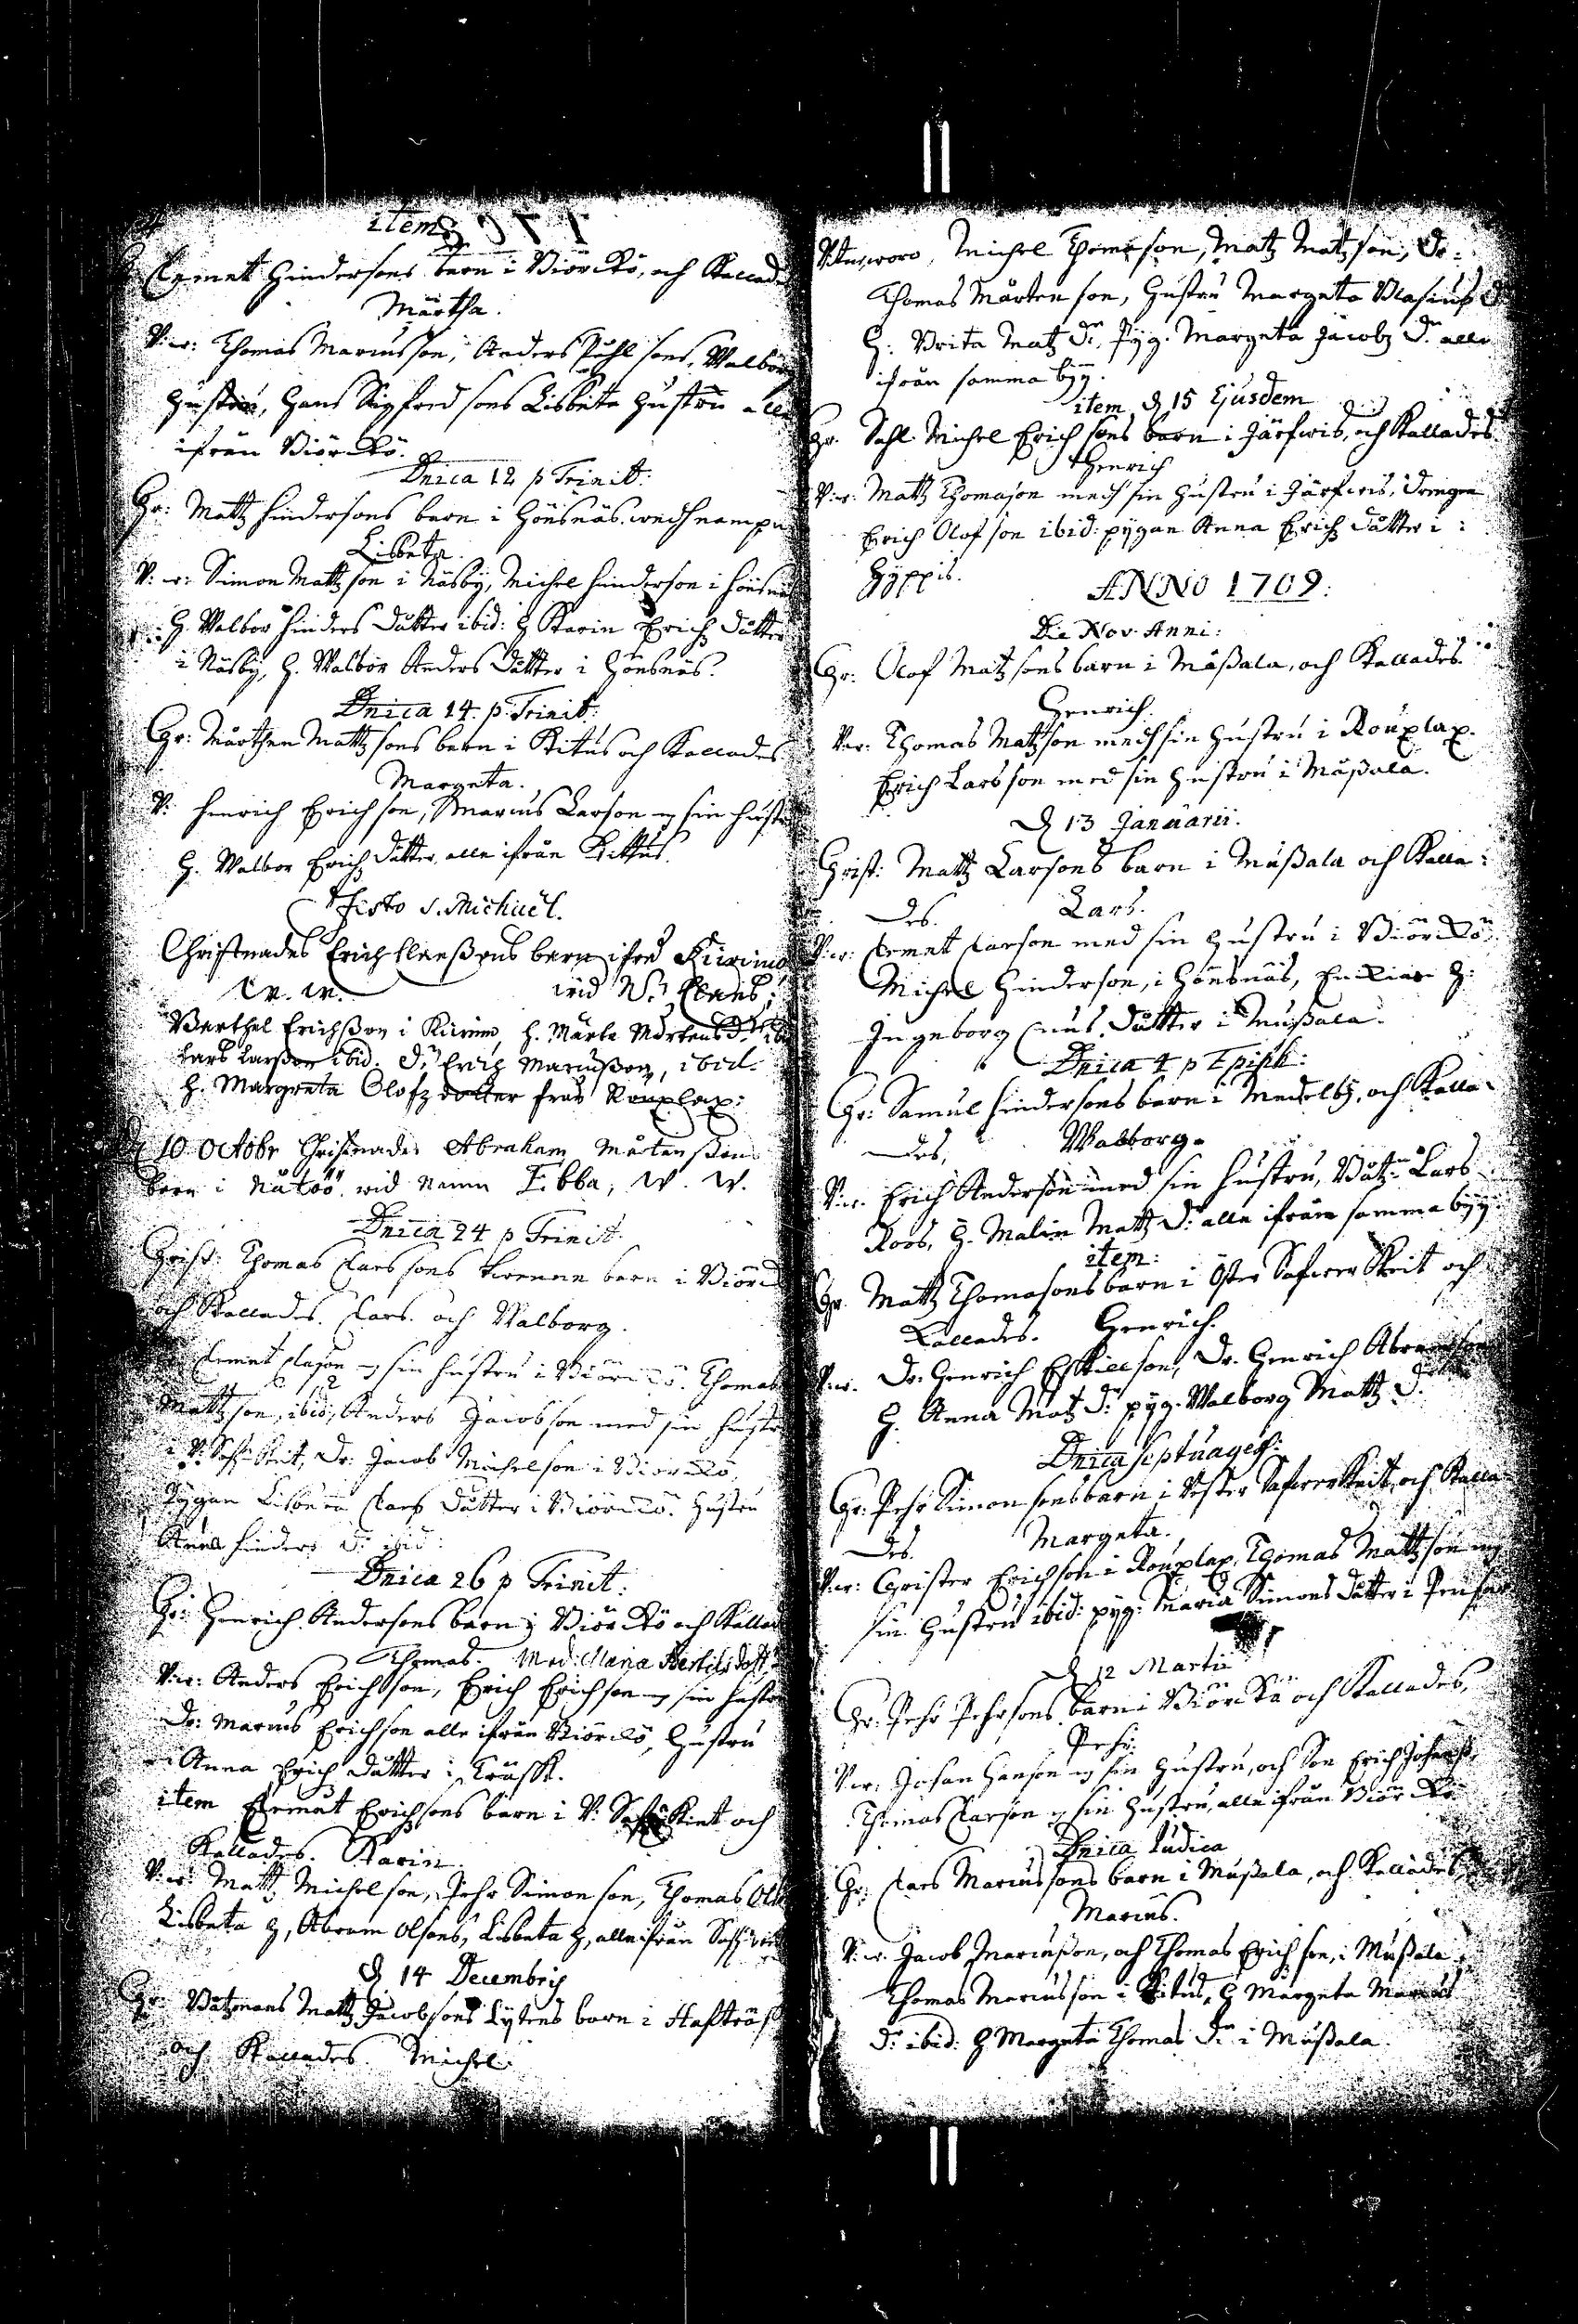 item
Clemet Hindersons barn i Biörckö, och Kallad
Märtha.
V. w: Thomas Mariusson, Anders Påhlsons, Walbor
Hustru, Hans Sigfredsons Lisbeta Hustru alle
ifrån Biörckö.
Dnica 12 p Trinit:
Chr: Matz Hindersons barn i Hönsnäs, wedh nampn
Lisbeta.
V. w: Simon Mattzson i Näsby, Michel Hinderson i Hönsnäs
H. Walbor Hinders dåtter ibid: H Karin Erichz dåtter
i Näsby, H. Walbor Anders dåtter i Hönsnäs.
Dnica 14. p. Trinit:
Chr: Mårthen Mattzsons barn i Kitus och Kallades
Margeta.
V: Henrich Erichson, Marius Larson m sin Hustru
H. Walbor Erichz dåtter, alle ifrån Kittus.
Festo S. Michaël.
Christnades Erich Claeßons barn ifrå Kivimo
W. W. wid N. Claes;
Barthel Erichßon i Kivimo, H. Märta Mårtens D. ibid
Lars Larßon ibid. D. Erich Mariußon, ibid.
H. Margreta Olofz dotter från Rouxlax:
10 Octobr Christnades Abraham Mårtenßons
barn i Nåtöö wid Namn Ebba, W. W.
Dnica 24 p Trinit.
Christ: Thomas Clarssons barn i Biörck
och Kallades. Clars. och Walborg.
Clemet Clason m sin Hustru i Biörckö. Thomas
Mattzson, ibid; Anders Jacobson med sin Hustru
i V: Saf: Keit, Dr: Jacob Michelson i Biörckö,
Pygan Lisbeta Clars dåtter i Biörckö. Hustru
Anna Hinders D: ibid:
Dnica 26 p Trinit:
Chr: Henrich Andersons barn i Biörckö och Kallad
Thomas. Mod: Maria Bertils dott:
V. w: Anders Erichson, Erich Erichson m sin Hustru
Dr: Marius Erichson alle ifrån Biörckö, Hustru
Anna Erich dåtter i Träsk.
item Clemet Erichsons barn i V: Safwerkeit och
Kallades. Karin.
V. w: Mattz Michelson, Pehr Simonson, Thomas Ols
Lisbeta H, Abram Olsons, Lisbeta H, alle ifrån Saf:
D 14 Decembris
Chr: Båtzmans Mattz Jacobsons Lytens barn i Hafträsk
och Kallades. Michel.
Witne, woro, Michel Thomeson, Matz Matzson, Dr:
Thomas Mårtenson, Hustru Margeta Blasius D
H: Brita Matz Dr, Pyg. Margeta Jacobz D. alle
ifrån samma byy.
item D 15 Ejusdem
Chr. Sahl. Michel Erichsons barn i Järfwis, och Kallades
Henrich
V. w: Mattz Thomason medh sin Hustru i Järfwis, drengen
Erich Olofson ibid: pygan Anna Erichz dåtter i:
Hyppis.
ANNO 1709:
Die Nov. Anni:
Chr: Olof Matzsons barn i Måßala, och Kallades
Henrich.
V. w: Thomas Mattzson medh sin Hustru i Rouxlax.
Erich Larsson med sin Hustru i Måßala.
D 13 Januarii.
Christ: Mattz Larsons barn i Mußala och Kalla:
des. Lars.
V. w: Clemet Clarson med sin Hustru i Biörckö,
Michel Hinderson, i Hönsnäs, H:
Ingeborg Cnus dåtter i Mußala.
Dnica 4 p Epiph:
Chr: Samul Hindersons barn i Medelby, och Kalla-
des, Walborg.
V. w. Erich Anderson med sin Hustru, Båtz: Lars
Roos, H. Malin Mattz D: alle ifrån samma byy.
item:
Chr. Mattz Thomasons barn i Öster Safwer Keit och
Kallades. Henrich.
V. w. Dr. Henrich Eskillson, Dr. Henrich Abramson
H. Anna Matz D: pyg. Walborg Mattz D.
Dnica Septuages:
Chr: Pehr Simonsons barn i Wester Safwerkeit, och Kalla
des. Margeta.
V. w: Christer Erichson i Rouxlax, Thomas Mattzson m
sin Hustru ibid: pyg: Maria Simons dåtter i
D 12 Martii
Chr: Pehr Pehrsons barn i Biörckö och Kallades,
Pehr.
V. w: Johan Hanson m sin Hustru, och Son Erich Johanß,
Thomas Clarson m sin Hustru, alle ifrån Biörckö
Dnica Iudica
Chr: Clars Mariussons barn i Mußala, och Kallades,
Marius.
V. w. Jacob Mariusson, och Thomas Erichson, i Mußala
Thomas Mariusson i Kitus, H Margeta Marius
D: ibid: H Margeta Thomas D: i Mußala.